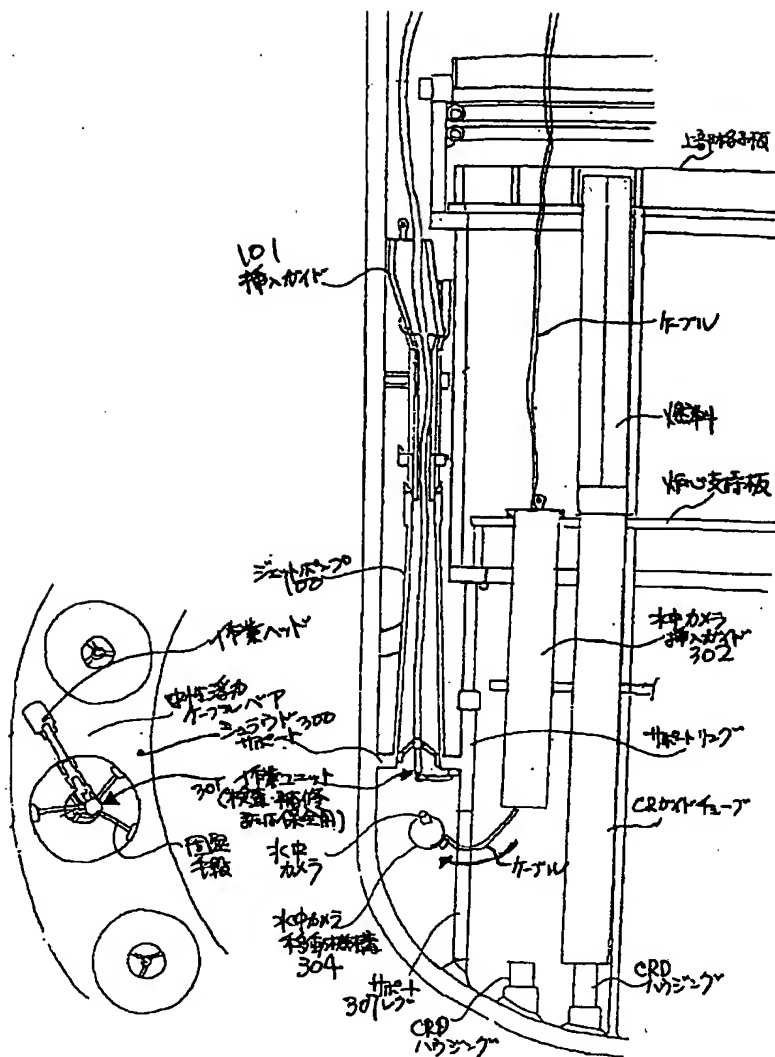 上部格子板
101
挿入ガイド
ケーブル
燃料
炉心支持板
ジェットポンプ
100
作業ヘッド
水中カメラ
挿入ガイド
302
中性浮力
ケーブルベア
シュラウド 300
サポート
サポートリング
301 作業ユニット
(検査・補修
または保全用)
CRガイドチューブ
水中
カメラ
固定
手段
ケーブル
水中カメラ
移動機構
304
サポート
307 レグ
CRD
ハウジング
CRD
ハウジング